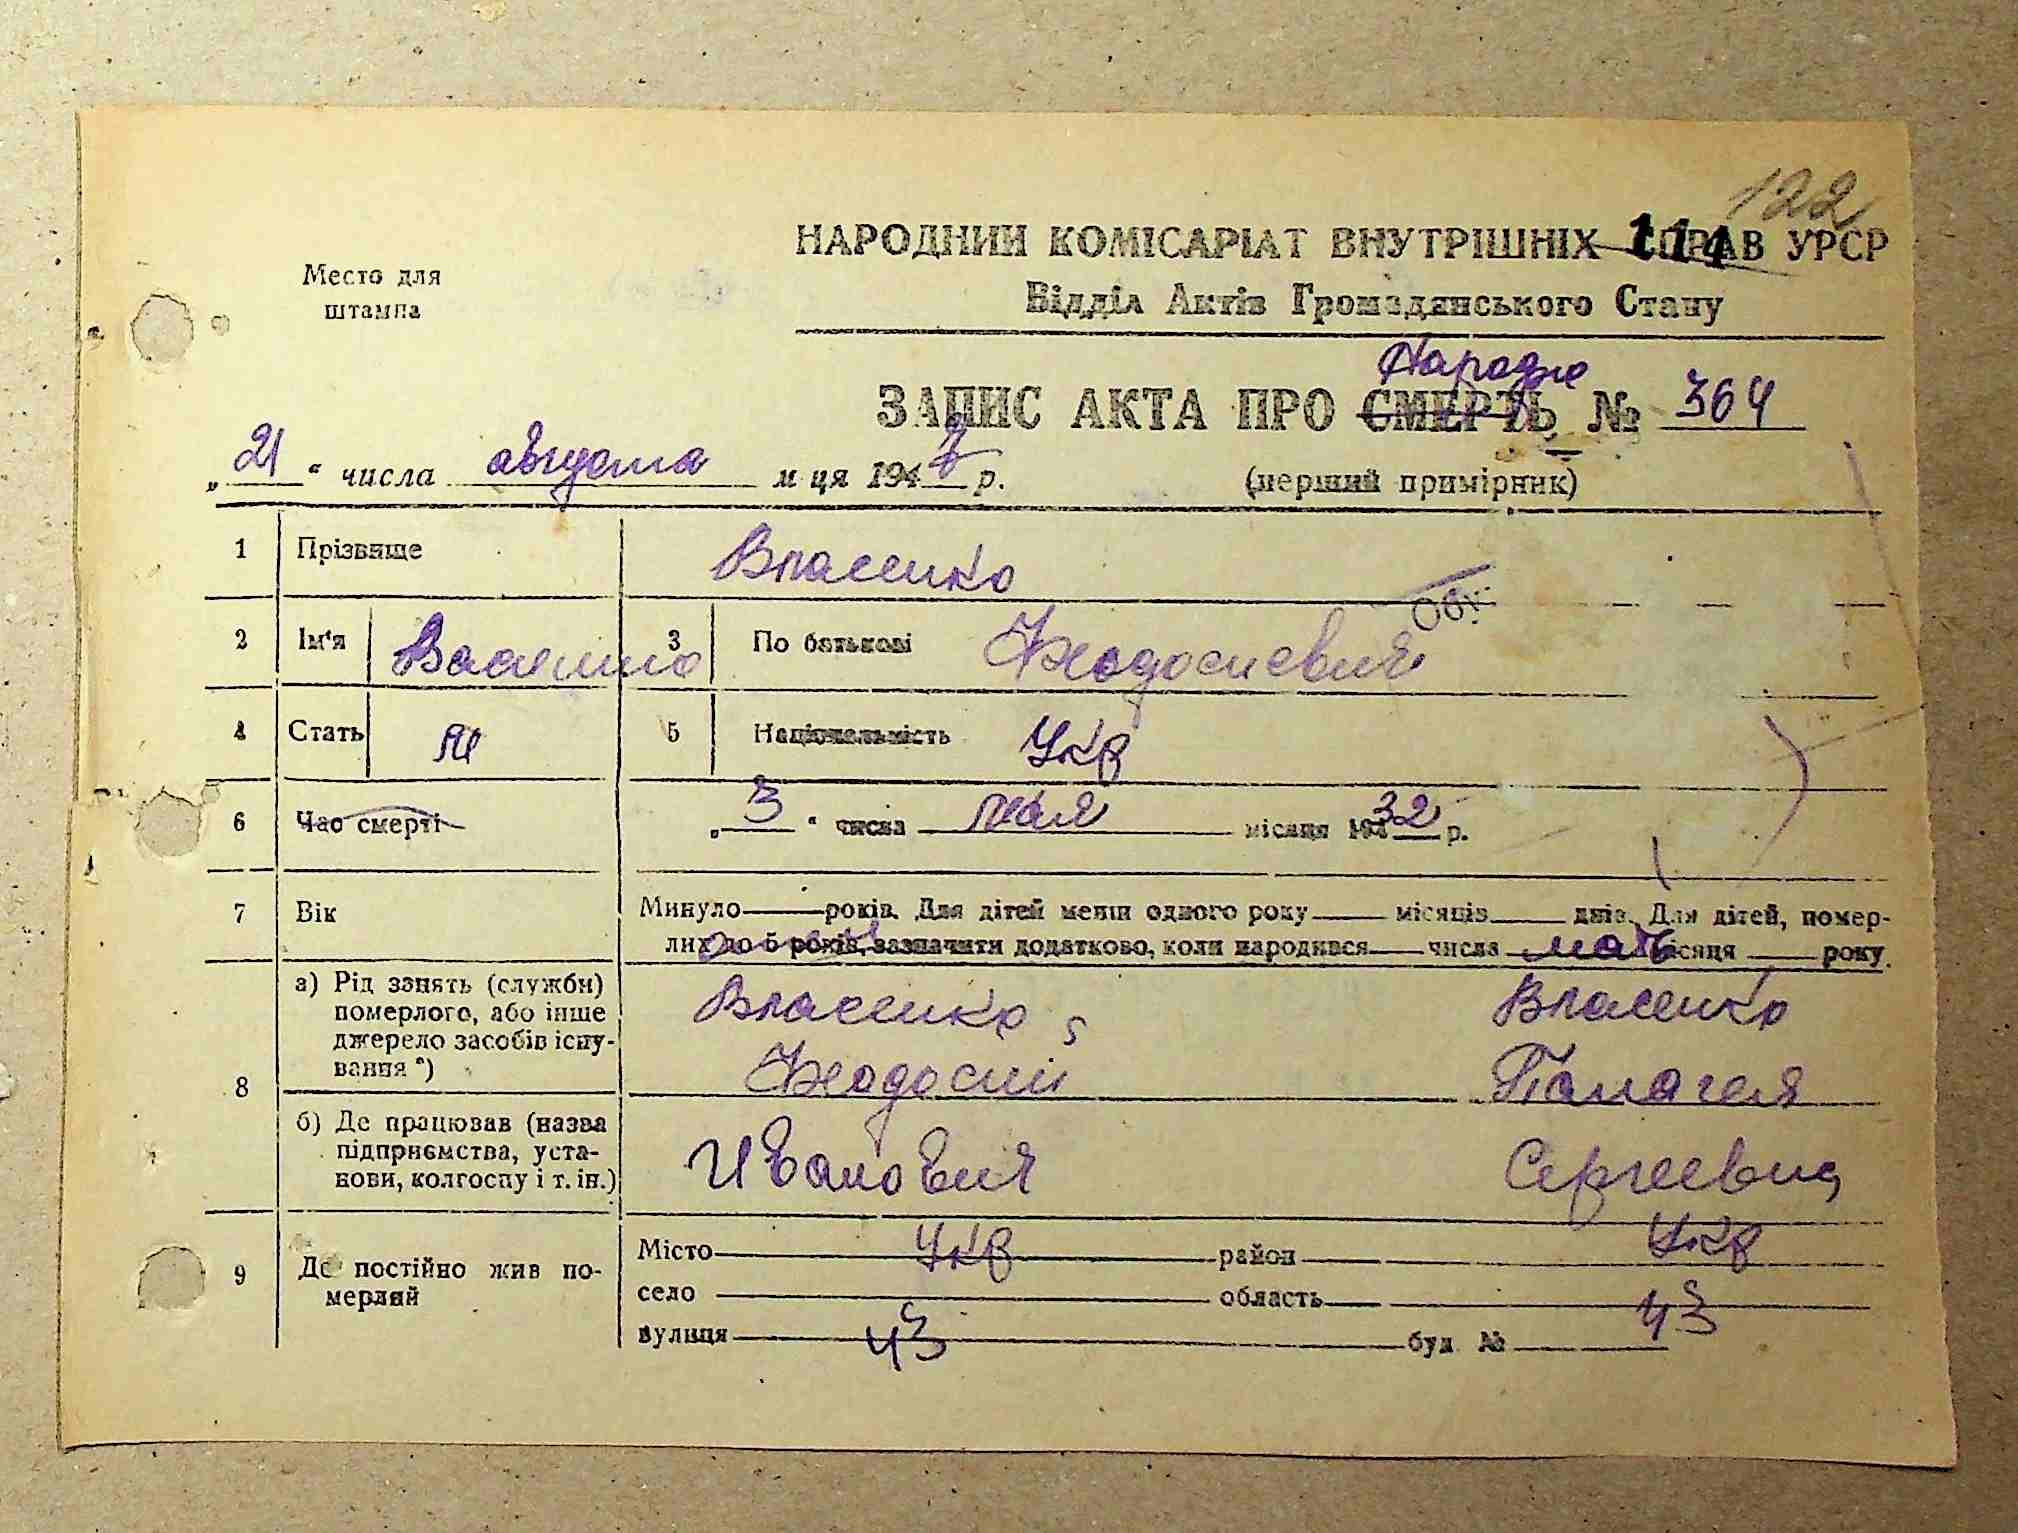 122
НАРОДНИЙ КОМІСАРІАТ ВНУТРІШНІХ СПРАВ УРСР
114
Место для
штампа
Відділ Актів Громадянського Стану
Народж
ЗАПИС АКТА ПРО СМЕРТЬ № 364
„21" числа августа м ця 1947 р.
(перший примірник)
1 Прізвище Власенко
2 Ім'я Василий 3 По батькові Феодосиевич
4 Стать м 5 Національність Укр
6 Час смерті „3" числа мая місяця 194 32 р.
7 Вік Минуло років. Для дітей менш одного року місяців днів. Для дітей, помер-
лих до 5 років, зазначити додатково, коли народився числа місяця року.
отец мать
8 а) Рід занять (служби)
померлого, або інше
джерело засобів існу-
вання *)
Власенко Власенко
Феодосий Пелагея
б) Де працював (назва
підприємства, уста-
нови, колгоспу і т. ін.)
Иванович Сергеевна
9 Де постійно жив по-
мерлий
Місто Укр район Укр
село область
вулиця 43 буд. № 43